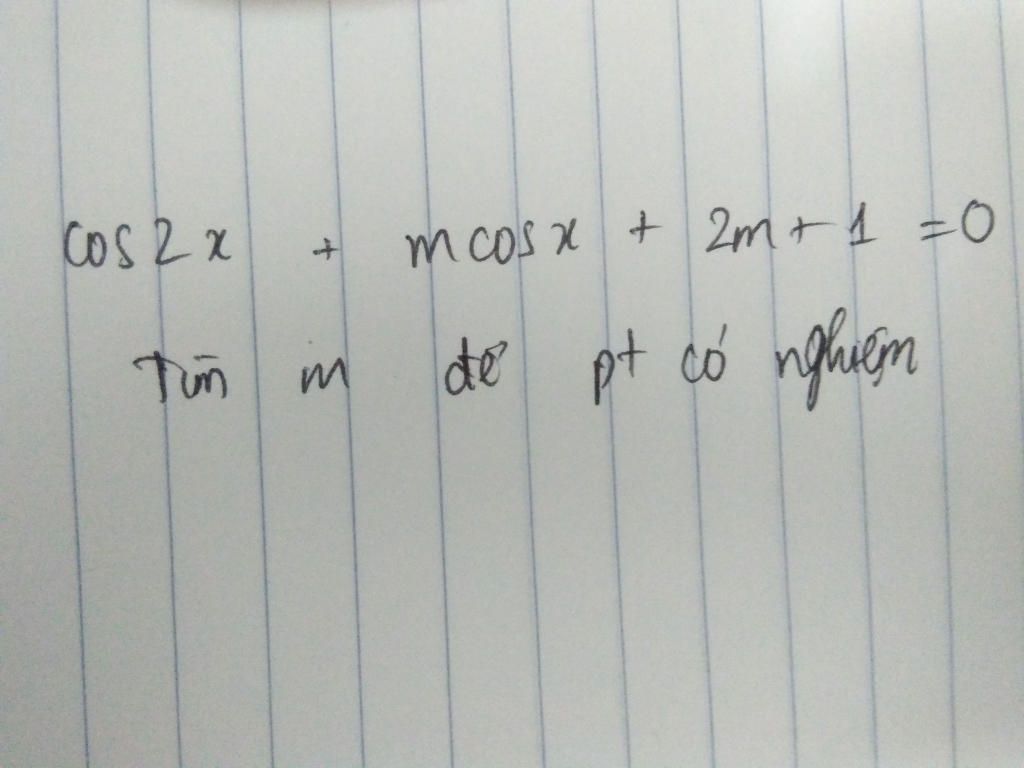 cos2x + mcosx + 2m + 1 = 0
Tìm m để pt có nghiệm